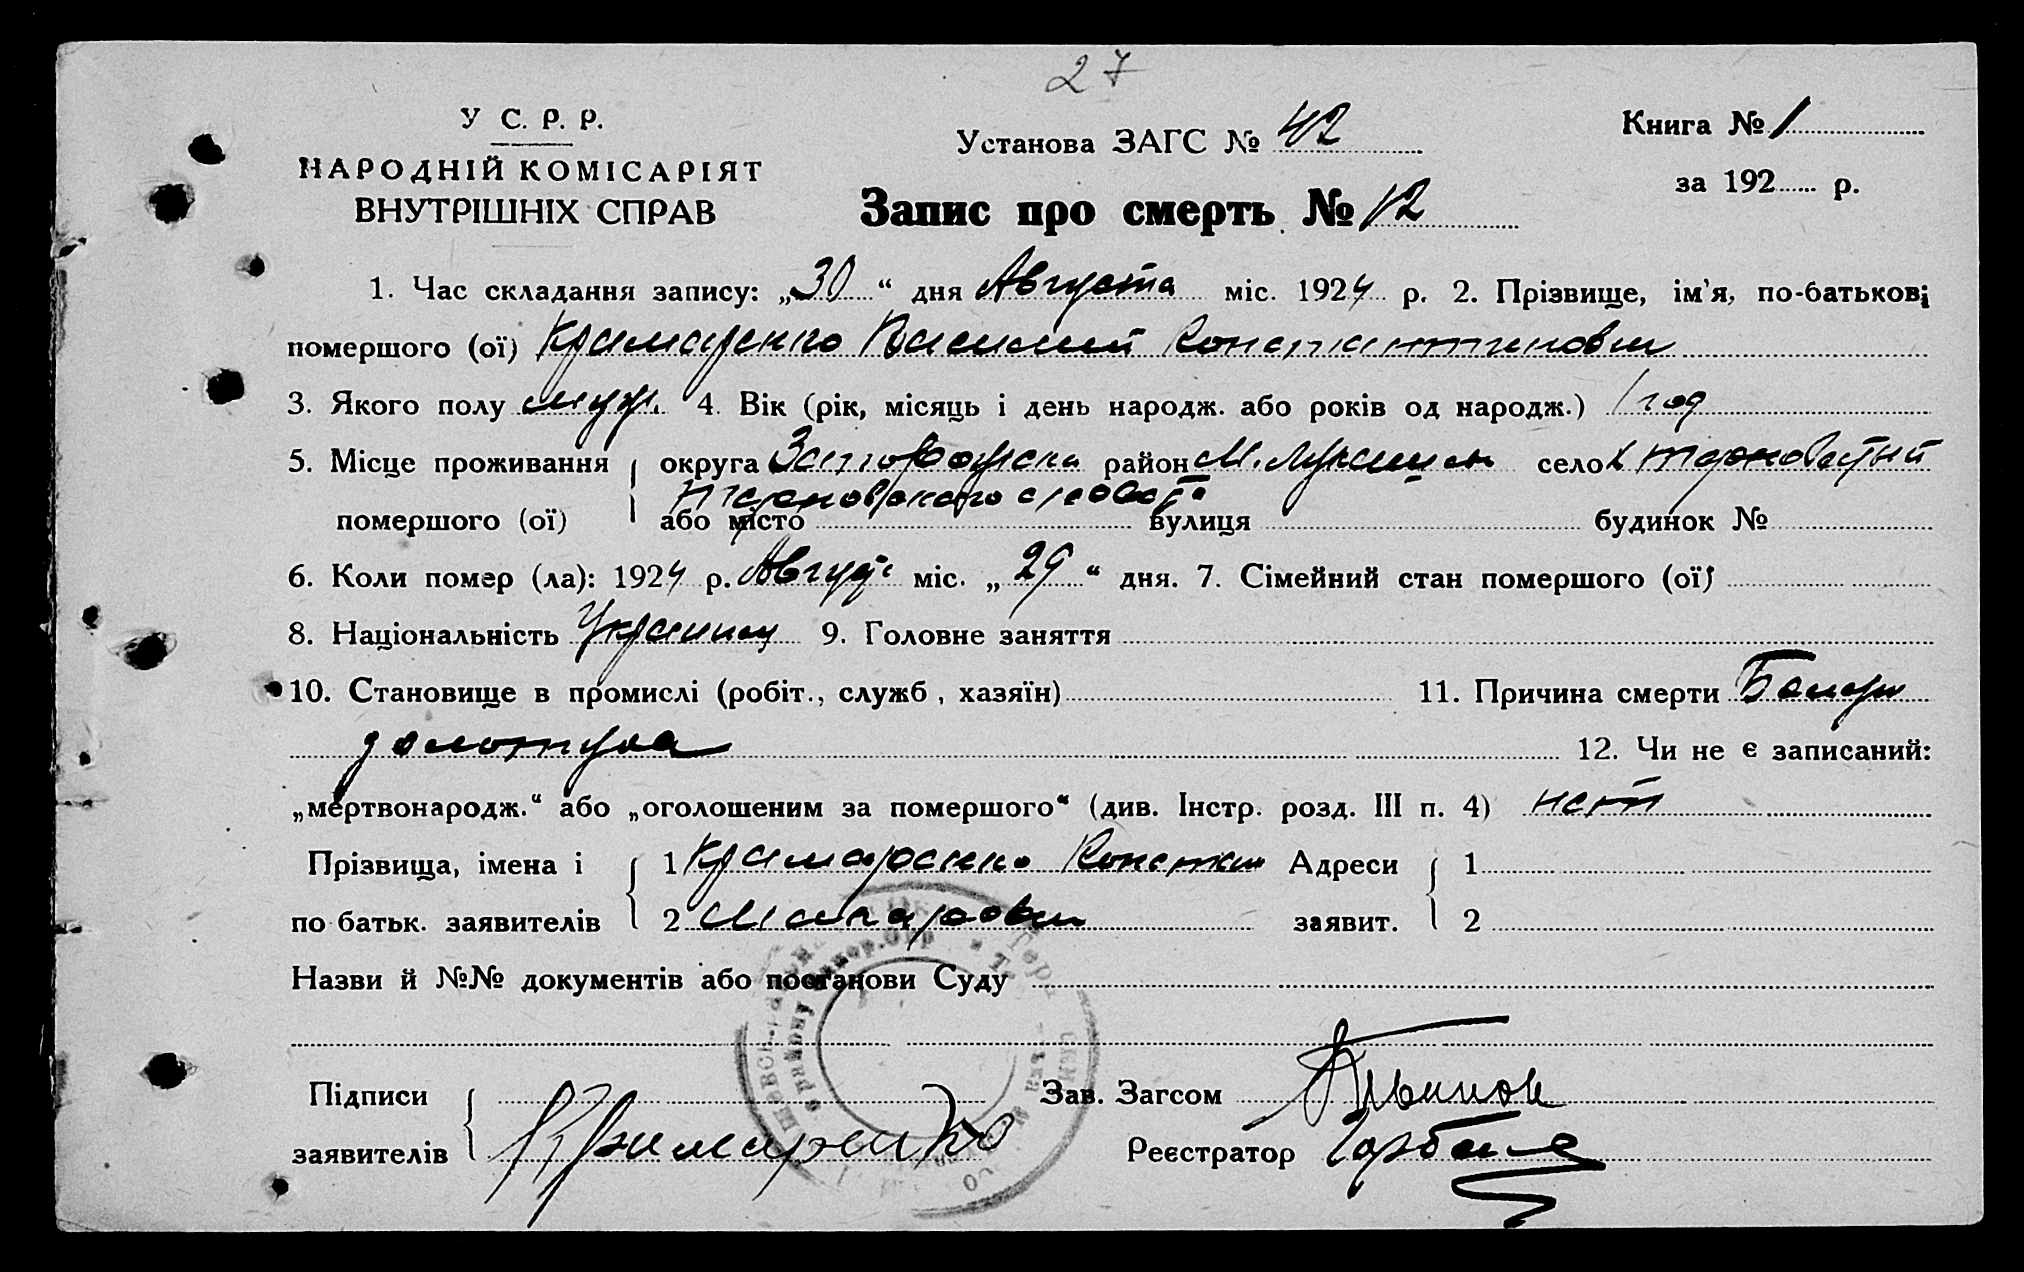 27
У С. Р. Р.
НАРОДНІЙ КОМІСАРІЯТ
ВНУТРІШНІХ СПРАВ
Установа ЗАГС № 42
Книга № 1
за 192 р.
Запис про смерть № 12
1. Час складання запису: „30“ дня Августа міс. 1924 р. 2. Прізвище, ім'я, по-батькові
помершого (ої) Крамаренко Василий Константинович
3. Якого полу муж. 4. Вік (рік, місяць і день народж. або років од народж.) 1 год
5. Місце проживання округа район села
помершого (ої) або місто вулиця будинок №
6. Коли помер (ла): 1924 р. Август міс. „29“ дня. 7. Сімейний стан помершого (ої)
8. Національність Украинец 9. Головне заняття
10. Становище в промислі (робіт., служб, хазяїн) 11. Причина смерти
12. Чи не є записаний:
„мертвонародж.“ або „оголошеним за помершого“ (див. Інстр. розд. III п. 4) нет
Прізвища, імена і 1 Крамаренко Констан Адреси 1
по батьк. заявителів 2 заявит. 2
Назви й №№ документів або постанови Суду
Підписи Зав. Загсом
заявителів Крамаренко Реєстратор